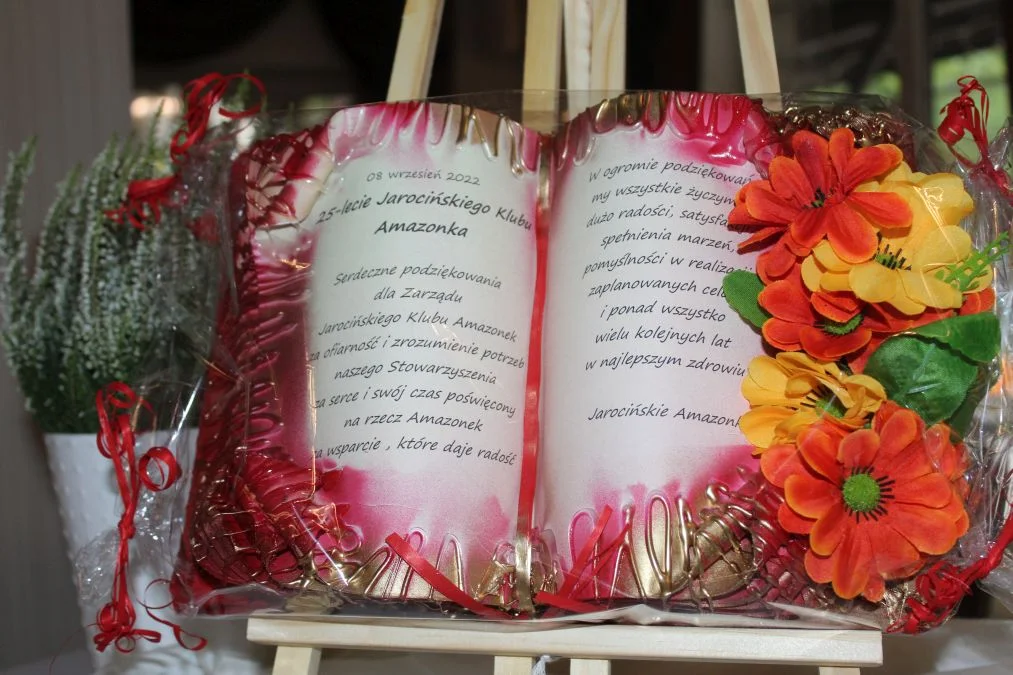 08 wrzesień 2022
25-lecie Jarocińskiego Klubu
Amazonka
Serdeczne podziękowania
dla Zarządu
Jarocińskiego Klubu Amazonek
za ofiarność i zrozumienie potrzeb
naszego Stowarzyszenia
za serce i swój czas poświęcony
na rzecz Amazonek
za wsparcie , które daje radość
W ogromie podziękowań
my wszystkie życzymy
dużo radości, satysfakcji
spełnienia marzeń,
pomyślności w realizacji
zaplanowanych celów
i ponad wszystko
wielu kolejnych lat
w najlepszym zdrowiu
Jarocińskie Amazonki